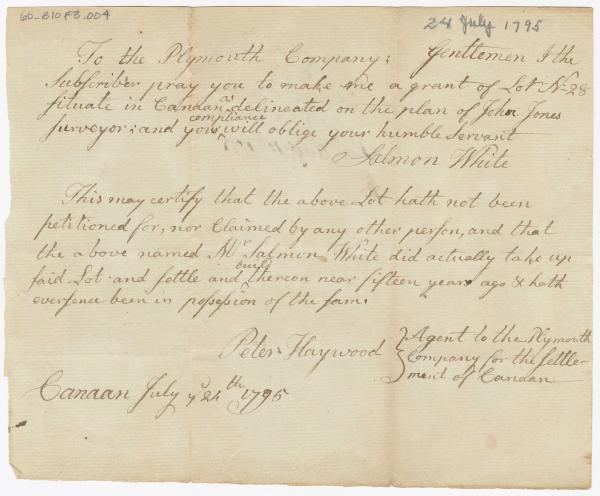 60-B10F3.004
24 July 1795
To the Plymouth Company; Gentlemen I the
Subscriber pray you to make me a grant of Lot No 28
situate in Canaan as delineated on the plan of John Jones
surveyor; and your compliance will oblige your humble Servant
Salmon White
This may certify that the above Lot hath not been
petitioned for, nor Claimed by any other person, and that
the above named Mr Salmon White did actually take up
said Lot and settle and build thereon near fifteen years ago & hath
eversence been in possession of the same
Peter Haywood } Agent to the Plymouth
Company for the settle-
ment of Canaan
Canaan July ye 24th 1795